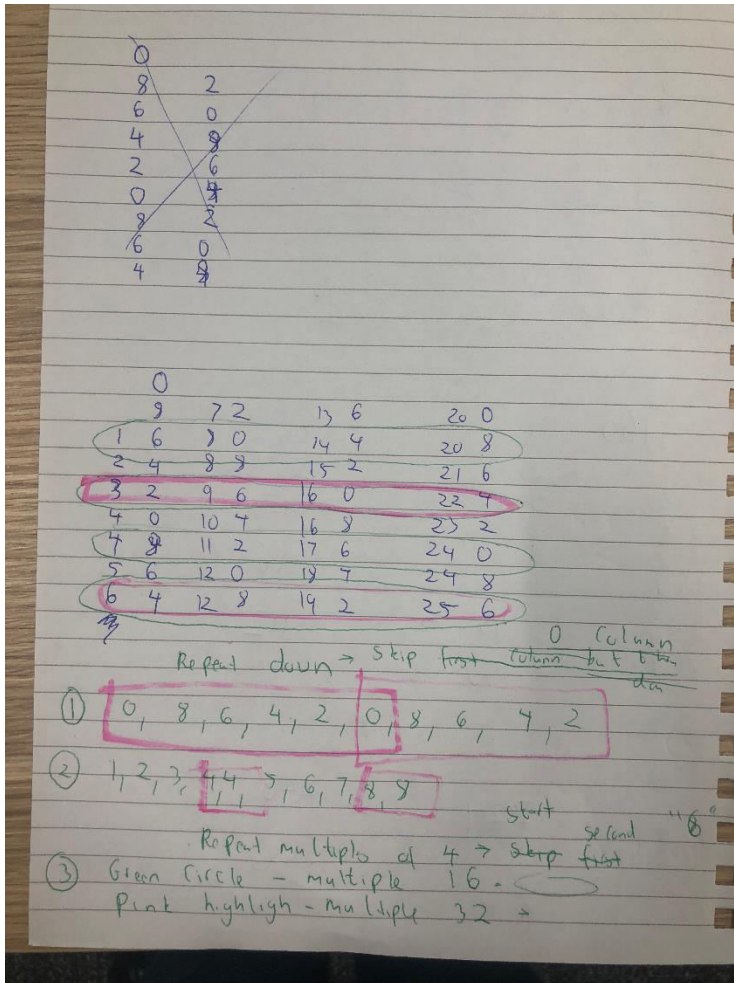 0
8 2
6 0
4
2 6
0
8 2
6 0
4
0
8 7 2 13 6 20 0
1 6 8 0 14 4 20 8
2 4 8 8 15 2 21 6
3 2 9 6 16 0 22 4
4 0 10 4 16 8 23 2
4 8 11 2 17 6 24 0
5 6 12 0 18 4 24 8
6 4 12 8 19 2 25 6
0 column
Repeat down → skip first column but then
① 0, 8, 6, 4, 2, 0, 8, 6, 4, 2
② 1, 2, 3, 4, 4, 5, 6, 7, 8, 8
start second "8"
Repeat multiples of 4 → skip first
③ Green circle - multiple 16.
Pink highligh - multiple 32